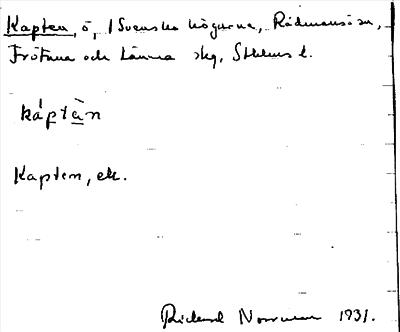 Kapten, ö, i Svenska högarna, Rådmansö sn,
Frötuna och Länna skg, Sthlms l.
káptàn
Kapten, ek.
Rickard Norrman 1931.